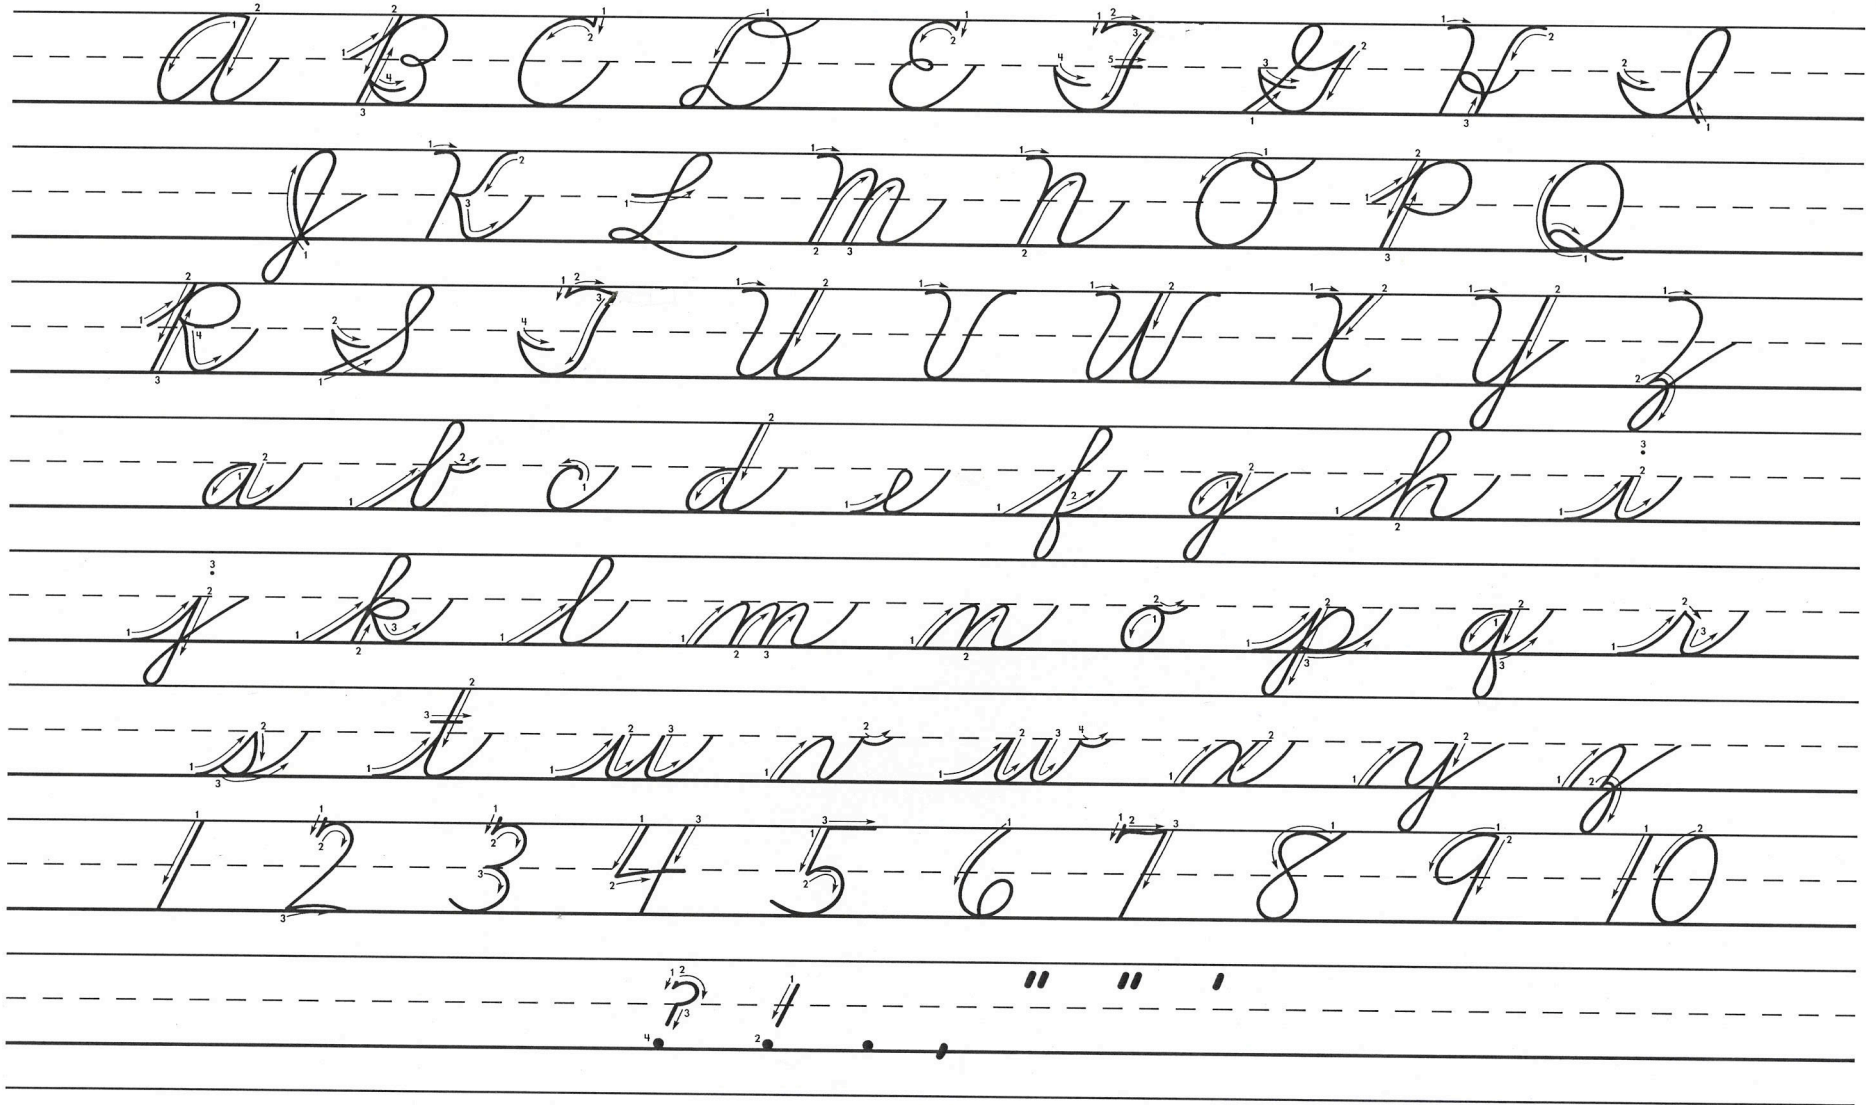 A B C D E F G H I
J K L M N O P Q
R S T U V W X Y Z
a b c d e f g h i
j k l m n o p q r
s t u v w x y z
1 2 3 4 5 6 7 8 9 10
? ! . , " " '